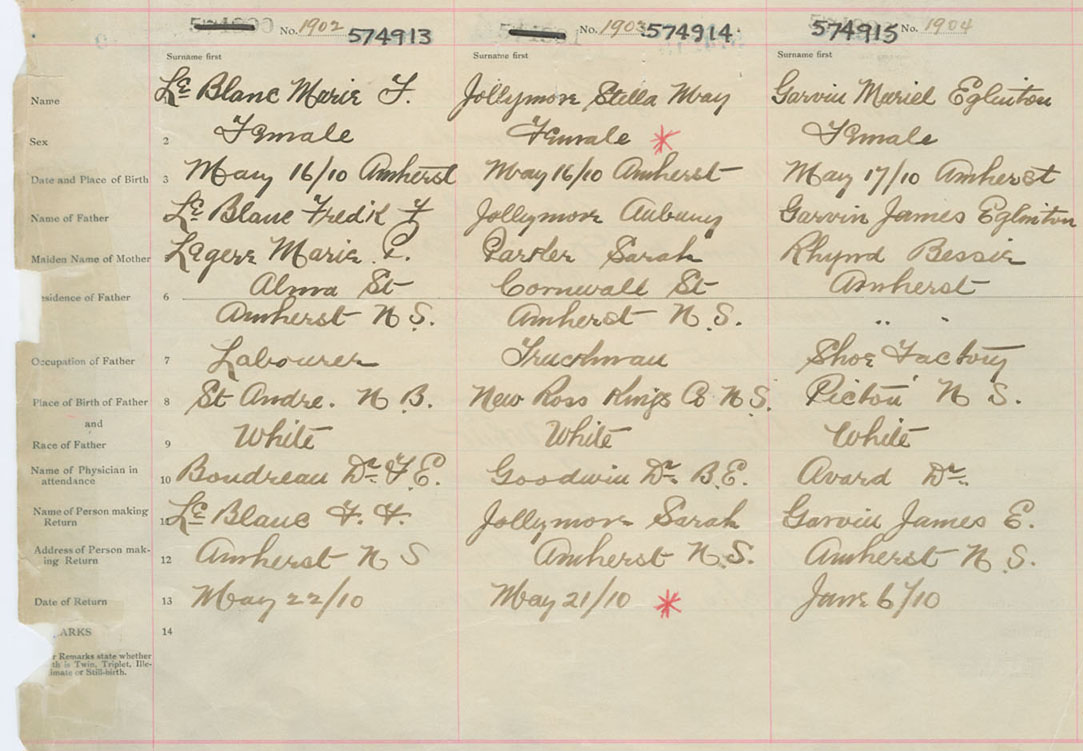 No. 1902 574913 No. 1903 574914 574915 No. 1904
Surname first Surname first Surname first
Name Le Blanc Marie F. Jollymore Stella May Garvin Muriel Eglinton
Sex 2 Female Female * Female
Date and Place of Birth 3 May 16/10 Amherst May 16/10 Amherst May 17/10 Amherst
Name of Father Le Blanc Fredk F Jollymore Aubury Garvin James Eglinton
Maiden Name of Mother Legere Marie. C. Parker Sarah Rhynd Bessie
Alma St Cornwall St Amherst
esidence of Father 6
Amherst N S. Amherst N S.
Occupation of Father 7 Labourer Truckman Shoe Factory
Place of Birth of Father 8 St Andre. N B. New Ross Kings Co N S. Pictou N S.
and
Race of Father 9 White White White
Name of Physician in
attendance 10 Boudreau Dr. F. E. Goodwin Dr. B. E. Avard Dr.
Name of Person making
Return 11 Le Blanc F. F. Jollymore Sarah Garvin James E.
Address of Person mak-
ing Return 12 Amherst N S Amherst N. S. Amherst N S.
Date of Return 13 May 22/10 May 21/10 * June 6/10
ARKS 14
r Remarks state whether
th is Twin, Triplet, Ille-
imate or Still-birth.